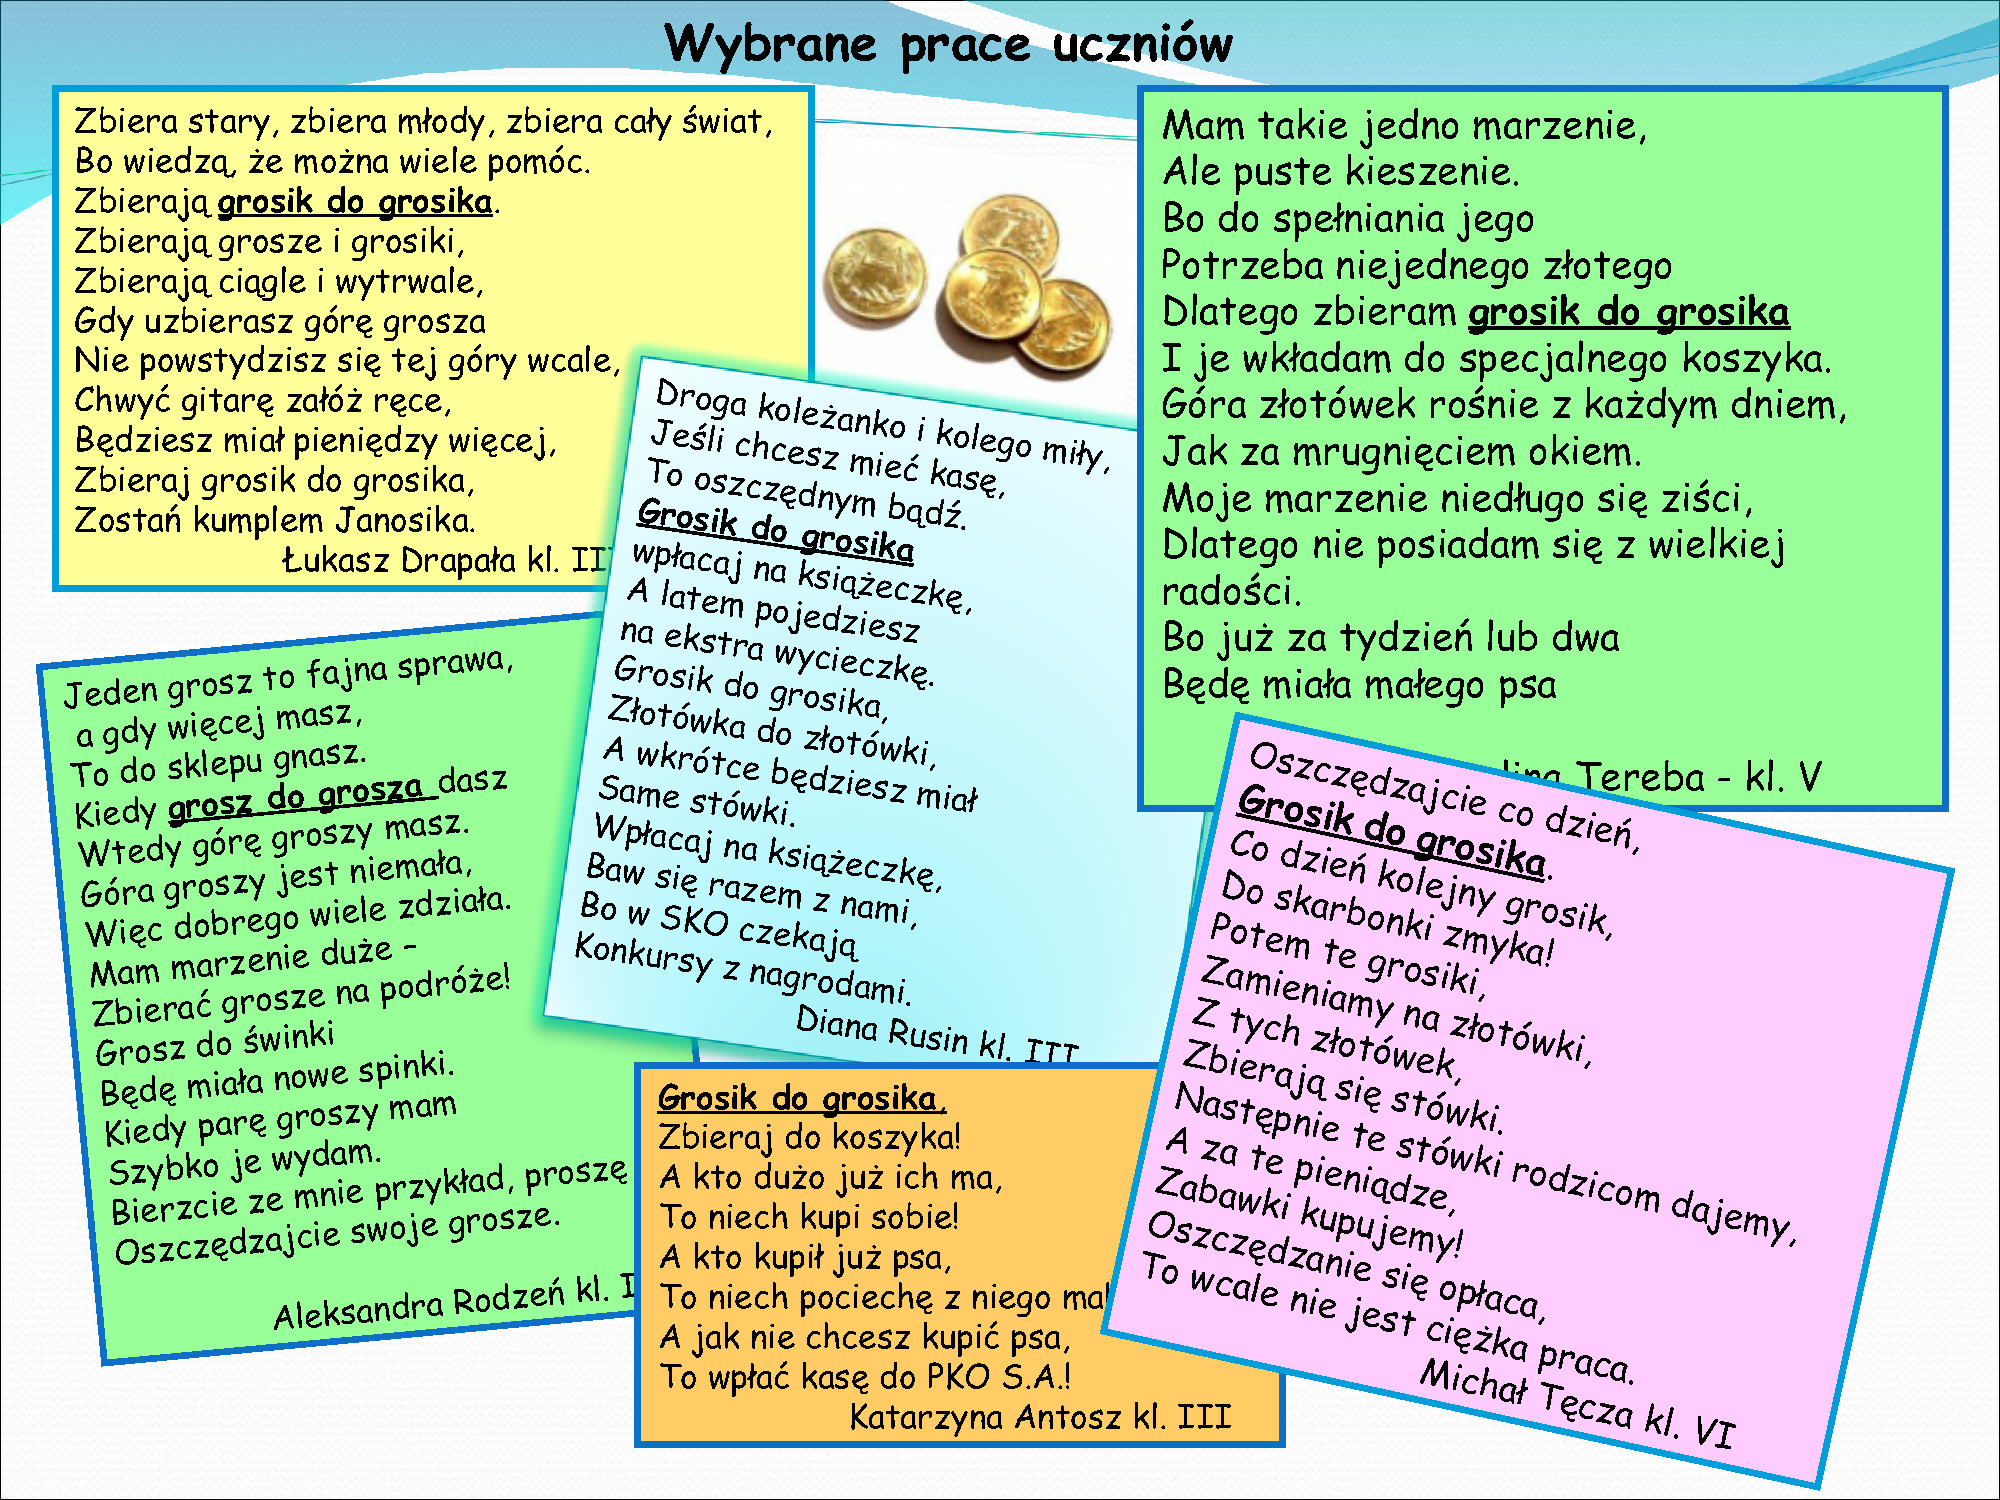 Wybrane prace uczniów
Zbiera stary, zbiera młody, zbiera cały świat,
Bo wiedzą, że można wiele pomóc.
Zbierają grosik do grosika.
Zbierają grosze i grosiki,
Zbierają ciągle i wytrwale,
Gdy uzbierasz górę grosza
Nie powstydzisz się tej góry wcale,
Chwyć gitarę załóż ręce,
Będziesz miał pieniędzy więcej,
Zbieraj grosik do grosika,
Zostań kumplem Janosika.
Łukasz Drapała kl.
Mam takie jedno marzenie,
Ale puste kieszenie.
Bo do spełniania jego
Potrzeba niejednego złotego
Dlatego zbieram grosik do grosika
I je wkładam do specjalnego koszyka.
Góra złotówek rośnie z każdym dniem,
Jak za mrugnięciem okiem.
Moje marzenie niedługo się ziści,
Dlatego nie posiadam się z wielkiej
radości.
Bo już za tydzień lub dwa
Będę miała małego psa
Tereba - kl. V
Droga koleżanko i kolego miły,
Jeśli chcesz mieć kasę,
To oszczędnym bądź.
Grosik do grosika
wpłacaj na książeczkę,
A latem pojedziesz
na ekstra wycieczkę.
Grosik do grosika,
Złotówka do złotówki,
A wkrótce będziesz miał
Same stówki.
Wpłacaj na książeczkę,
Baw się razem z nami,
Bo w SKO czekają
Konkursy z nagrodami.
Diana Rusin kl. III
Jeden grosz to fajna sprawa,
a gdy więcej masz,
To do sklepu gnasz.
Kiedy grosz do grosza dasz
Wtedy górę groszy masz.
Góra groszy jest niemała,
Więc dobrego wiele zdziała.
Mam marzenie duże –
Zbierać grosze na podróże!
Grosz do świnki
Będę miała nowe spinki.
Kiedy parę groszy mam
Szybko je wydam.
Bierzcie ze mnie przykład, proszę
Oszczędzajcie swoje grosze.
Aleksandra Rodzeń kl.
Grosik do grosika,
Zbieraj do koszyka!
A kto dużo już ich ma,
To niech kupi sobie!
A kto kupił już psa,
To niech pociechę z niego
A jak nie chcesz kupić psa,
To wpłać kasę do PKO S.A.!
Katarzyna Antosz kl. III
Oszczędzajcie co dzień,
Grosik do grosika.
Co dzień kolejny grosik,
Do skarbonki zmyka!
Potem te grosiki,
Zamieniamy na złotówki,
Z tych złotówek,
Zbierają się stówki.
Następnie te stówki rodzicom dajemy,
A za te pieniądze,
Zabawki kupujemy!
Oszczędzanie się opłaca,
To wcale nie jest ciężka praca.
Michał Tęcza kl. VI